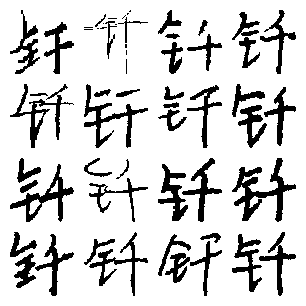 钎钎钎钎
钎钎钎钎
钎钎钎钎
钎钎钎钎